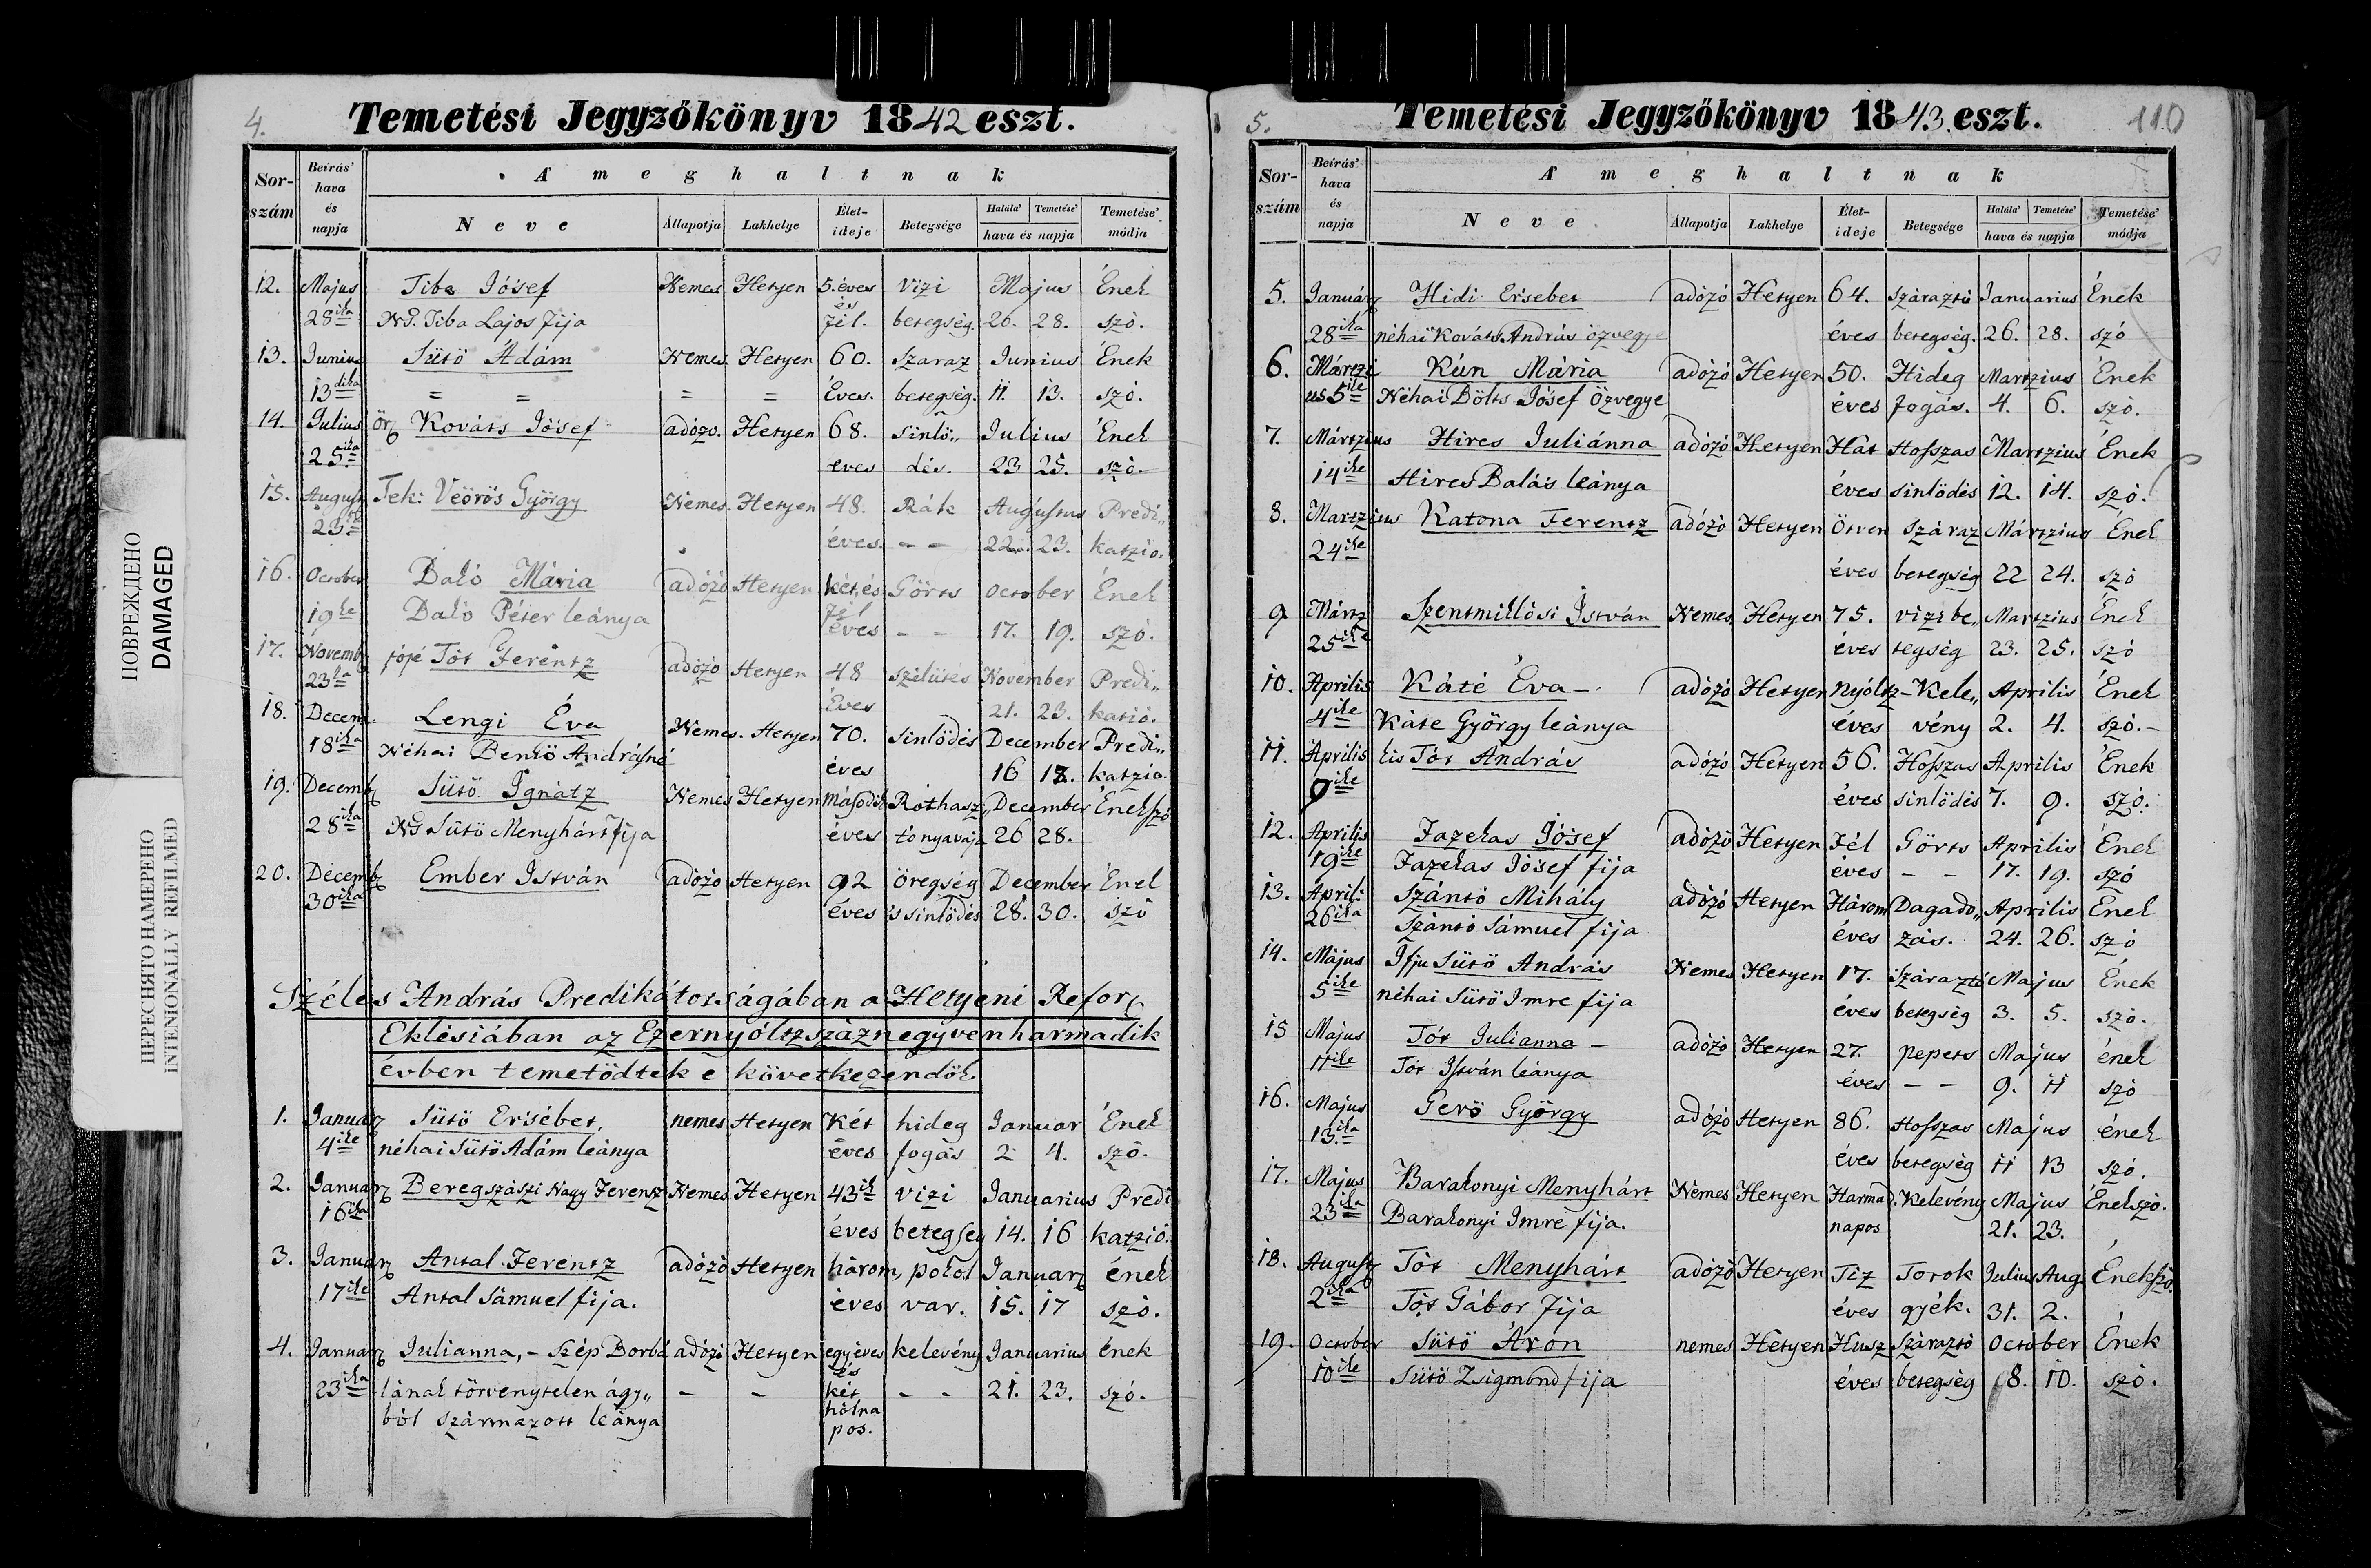 4.
Temetési Jegyzőkönyv 1842 eszt.
Sor-szám Beírás' hava és napja A' meghaltnak
Neve Állapotja Lakhelye Élet-ideje Betegsége Halála' Temetése' hava és napja Temetése' módja
12. Majus Tiba Jósef Nemes Hetyen 5. éves vizi Majus Ének
28ika NS. Tiba Lajos fija és fél. betegség. 26. 28. szó.
13. Junius Sütö Ádám Nemes Hetyen 60. szaraz Junius Ének
13dika = = = = Éves. betegség. 11. 13. szó.
14. Julius Ör Kováts Jósef adózo. Hetyen 68. sinlö„ Julius Ének
25ika eves dés. 23 25. szó.
15. August Tek: Veörös György Nemes. Hetyen 48. Rák Augustus Predi„
23 éves. - - 22. 23. katzio.
16. October Daló Mária adózó Hetyen két, és Görts October Ének
19ke Daló Péter leánya fél éves - - 17. 19. szó.
17. Novemb Tót Ferentz adózo Hetyen 48 szélütés November Predi„
23ka Éves 21. 23. katió.
18. Decem. Lengi Éva Nemes. Hetyen 70. sinlödés December Predi„
18ika Néhai Benkö Andrásné éves 16 18. katzio.
19. Decemb Sütö Ignátz Nemes Hetyen Második Rothasz„ December Énekszó
28ika NS Sütö Menyhárt fija éves tó nyavaja 26 28.
20. Decemb Ember István adózo Hetyen 92 öregség December Ének
30ika éves 's sinlödés 28. 30. szó
Széles András Predikátorságában a Hetyeni Refor
Eklésiában az Ezernyóltzszáznegyvenharmadik
évben temetödtek e következendök.
1. Januar Sütö Ersébet, nemes Hetyen Két hideg Januar Ének
4ike néhai Sütö Adám leánya éves fogás 2 4. szó.
2. Januar Beregszászi Nagy Ferentz Nemes Hetyen 43ik vizi Januarius Predi
16ika éves betegseg 14. 16 katzió.
3. Januar Antal Ferentz adózó Hetyen három pokol Januar ének
17ike Antal Sámuel fija. éves var. 15. 17 szó.
4. Januar Julianna, - Szép Borbá adózó Hetyen egy éves kelevény Januarius ének
23ika lának törvenytelen ágy„ - - és két - - 21. 23. szó.
ból származott leánya hólna pos.
5.
Temetési Jegyzőkönyv 1843. eszt.
110
Sor-szám Beírás' hava és napja A' meghaltnak
Neve Állapotja Lakhelye Élet-ideje Betegsége Halála' Temetése' hava és napja Temetése' módja
5. Január Hidi Ersebet adózó Hetyen 64. száraztó Januarius Ének
28ika néhai Kováts András özvegye éves betegség. 26. 28. szó
6. Mártzi Kún Mária adózó Hetyen 50. Hideg Martzius Ének
us 5ike Néhai Dölts Jósef Özvegye éves fogás. 4. 6. szó.
7. Mártzius Hires Juliánna adózó Hetyen Hat Hosszas Martzius Ének
14ike Hires Balás leánya éves sinlödés 12. 14. szó.
8. Martzius Katona Ferentz adózó Hetyen Ötven száraz Mártzius Ének
24ike éves betegség 22 24. szó
9 Mártz Szentmiklósi István Nemes Hetyen 75. vizi be„ Martzius Ének
25ike éves tegség 23. 25. szó
10. Aprilis Káté Éva - adózó Hetyen Nyóltz - Kele„ Aprilis Ének
4ike Káte György leánya éves vény 2. 4. szó.-
11. Aprilis kis Tót András adózó Hetyen 56. Hosszas Aprilis Ének
9ike éves sinlödés 7. 9. szó.
12. Aprilis Fazekas Jósef adózó Hetyen Fél Görts Aprilis Ének
19ike Fazekas Jósef fija éves - - 17. 19. szó
13. Aprili: Szántó Mihály adózó Hetyen Három Dagado„ Aprilis Ének
26ika Szántó Sámuel fija éves zás. 24. 26. szó
14. Május Ifju Sütö András Nemes Hetyen 17. száraztó Majus Ének
5ike néhai Sütö Imre fija éves betegség 3. 5. szó.
15 Majus Tót Julianna - adózó Hetyen 27. pepets Majus ének
11ike Tót István leánya éves - - 9. 11 szó
16. Majus Gerö György adózó Hetyen 86. Hosszas Majus ének
13ika éves betegség 11 13 szó.
17. Május Barakonyi Menyhárt Nemes Hetyen Harmad. Kelevény Majus Énekszó.
23ika Barakonyi Imre fija. napos 21. 23.
18. August Tót Menyhárt adózó Hetyen Tiz Torok Julius Aug. Énekszó.
2ika Tót Gábor fija éves gyék. 31. 2.
19. October Sütö Áron nemes Hetyen Husz száraztó October Ének
10ike Sütö Zsigmond fija éves betegség 8. 10. szó.
ПОВРЕЖДЕНО
DAMAGED
ПЕРЕСНЯТО НАМЕРЕНО
INTENIONALLY REFILMED